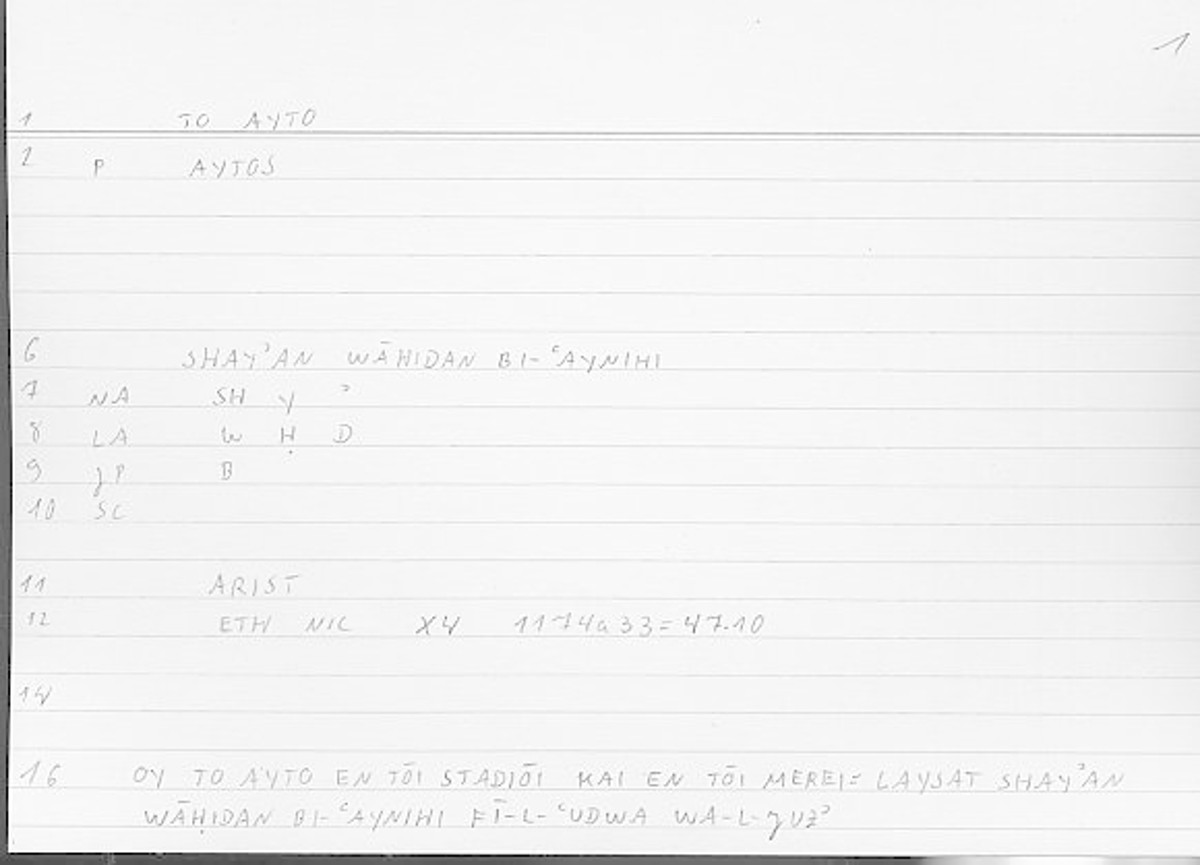 1
1 TO AYTO
2 P AYTOS
6 SHAYʾAN WĀHIDAN BI-ʿAYNIHI
7 NA SH Y ʾ
8 LA W Ḥ D
9 JP B
10 SC
11 ARIST
12 ETH NIC X4 1174a33=47.10
14
16 OY TO AYTO EN TŌI STADIŌI KAI EN TŌI MEREI= LAYSAT SHAYʾAN
WĀḤIDAN BI-ʿAYNIHI FĪ-L-ʿUDWA WA-L-JUZʾ